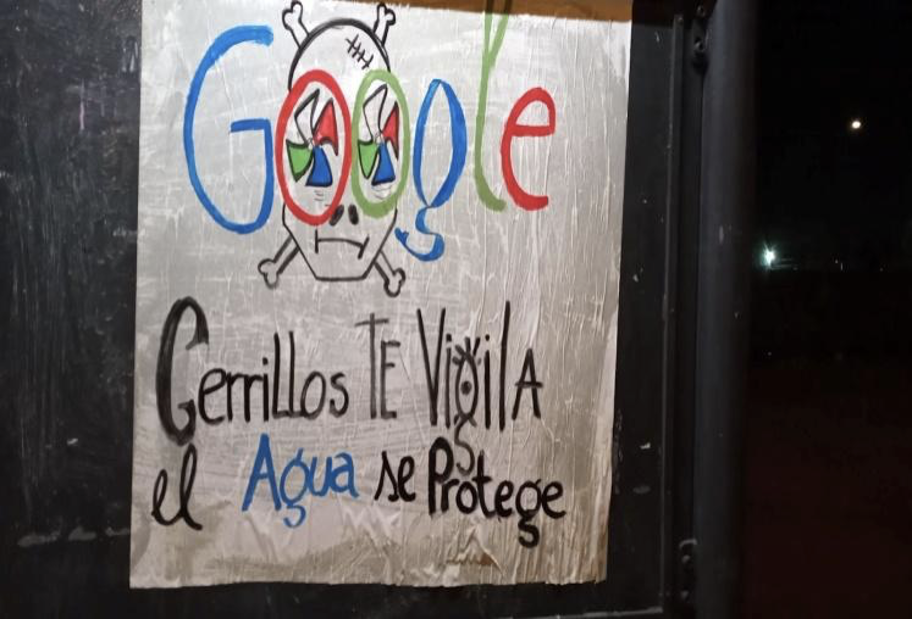 Google
Cerrillos TE VigilA
el Agua se Protege